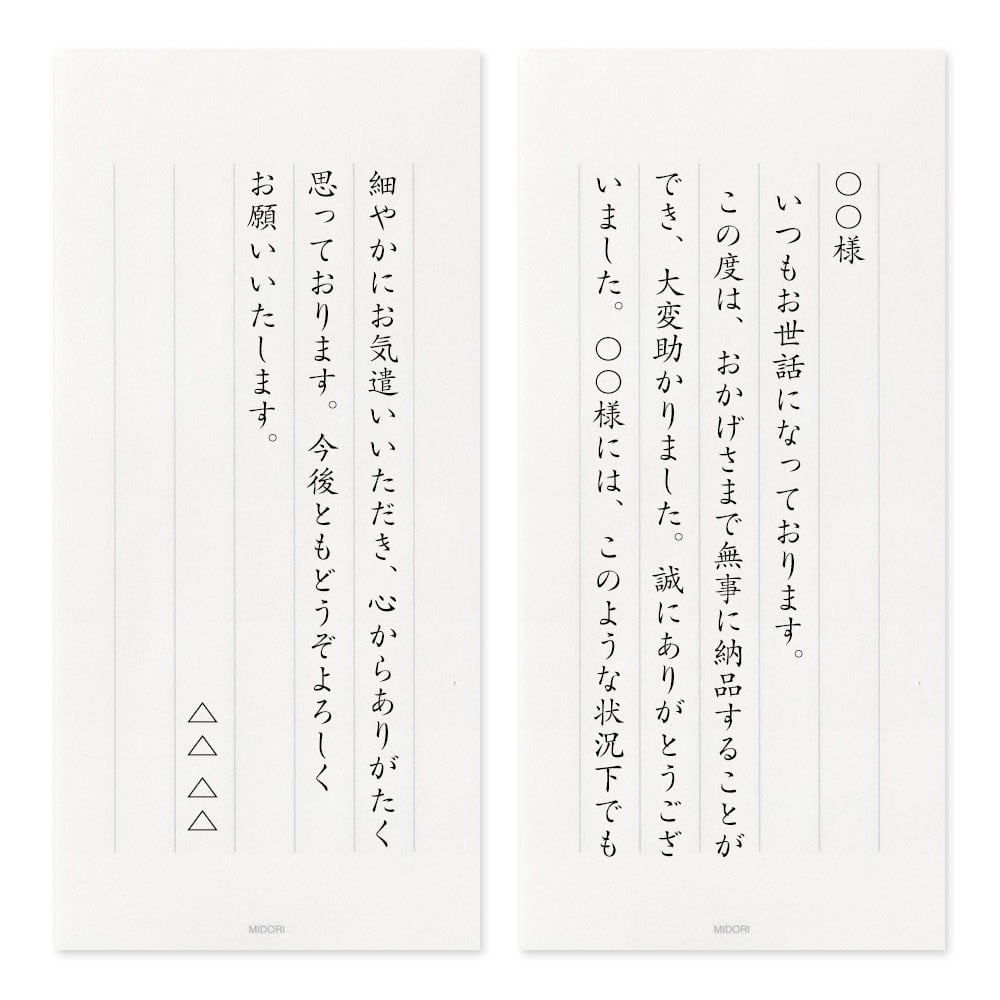 〇〇様
いつもお世話になっております。
この度は、おかげさまで無事に納品することが
でき、大変助かりました。誠にありがとうござ
いました。〇〇様には、このような状況下でも
MIDORI
細やかにお気遣いいただき、心からありがたく
思っております。今後ともどうぞよろしく
お願いいたします。
△△ △△
MIDORI